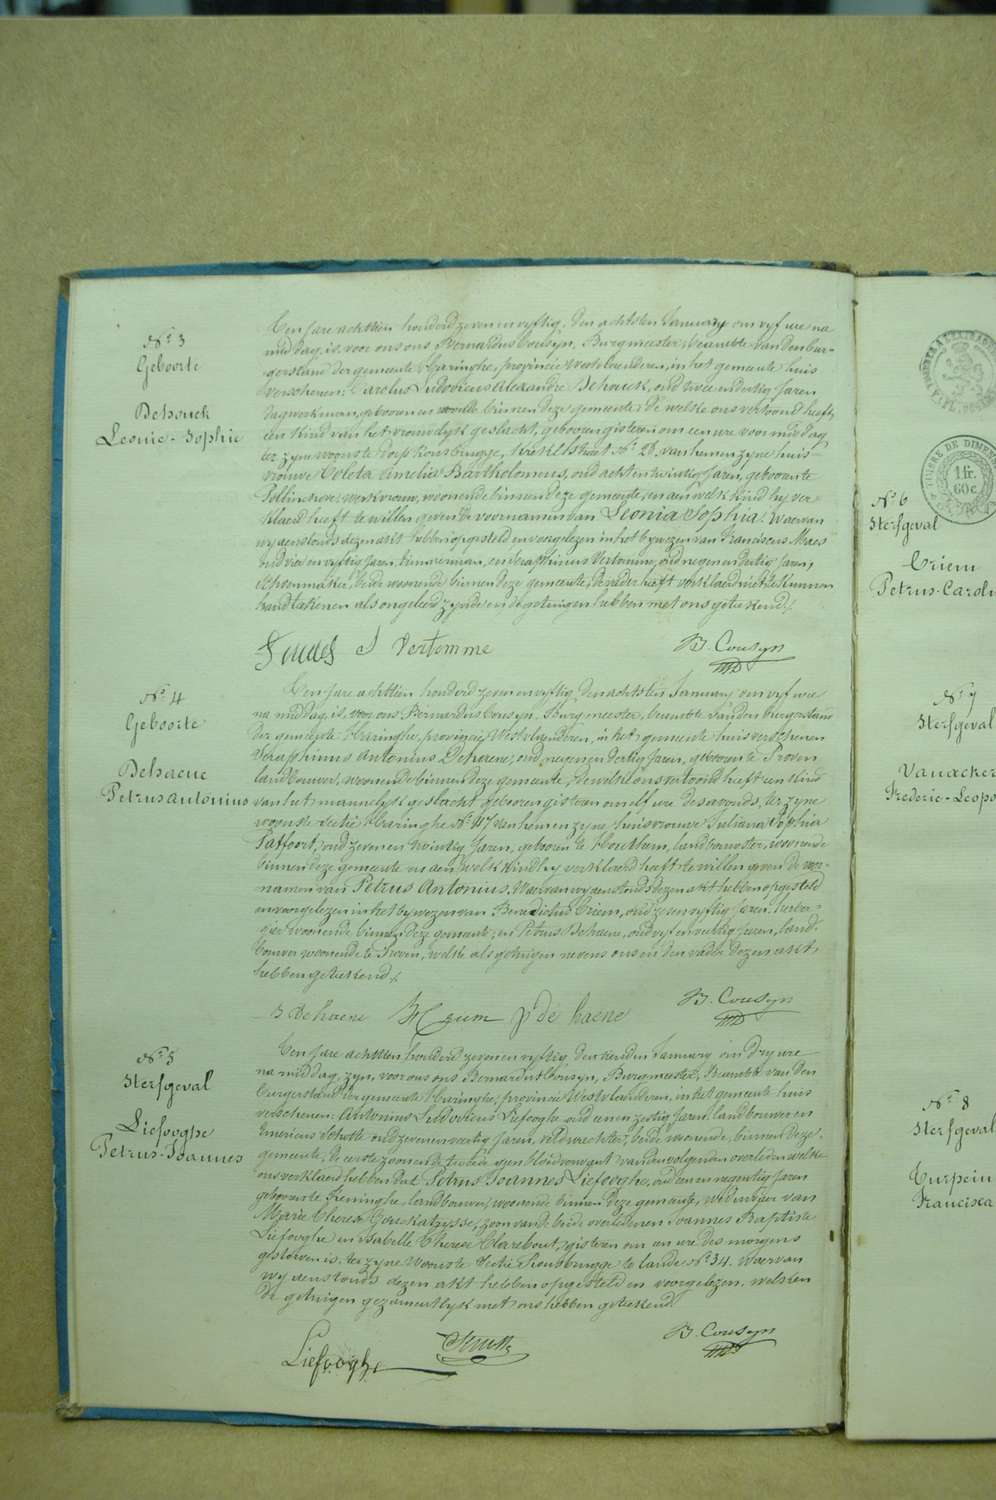 N.r 3
Geboorte
Dehouck
Leonie-Sophie
Een jare achttien honderd zeven en vyftig, den achtsten January om vyf ure na
middag, is voor ons Bernardus Cousyn, Burgmeester, beambte van den bur-
gerstand der gemeente Haringhe, provincie Westvlaenderen, in het gemeente huis
verschenen: Carolus Ludovicus Alexandre Dehouck, oud twee en dertig jaren
dagwerkman, geboren en woonende binnen deze gemeente; de welke ons vertoond heeft
een kind van het vrouwelyk geslacht, geboren gisteren om een ure voor middag
ter zyne woonste dorp Rousbrugge, N.r 28, van hem en zyne huis-
vrouwe Coleta Amelia Bartholomeus, oud acht en twintig jaren, geboren te
Pollinchove, werkvrouw, woonende binnen deze gemeente, en aen welk kind hy ver-
klaerd heeft te willen geven de voornamen van Leonia Sophia. Waervan
wy aenstonds dezen akt hebben opgesteld en voorgelezen in het bywezen van Franciscus Maes
oud vier en vyftig jaren, timmerman, en Seraphinus Vertomme, oud negen en dertig jaren,
schoenmaker, beide woonende binnen deze gemeente, de vader heeft verklaerd niet te kunnen
handtekenen als ongeleerd zynde en de getuigen hebben met ons geteekend.
S Vertomme
B. Cousyn
N.r 4
Geboorte
Dehaene
Petrus Antonius
Een jare achttien honderd zeven en vyftig, den achtsten January om vyf ure
na middag, is voor ons Bernardus Cousyn, Burgmeester, beambte van den burgerstand
der gemeente Haringhe, provincie Westvlaenderen, in het gemeente huis verschenen
Seraphinus Antonius Dehaene, oud negen en dertig jaren, geboren te Proven
landbouwer, woonende binnen deze gemeente, de welke ons vertoond heeft een kind
van het mannelyk geslacht geboren gisteren om elf ure des avonds, ter zyne
woonste sectie Haringhe N.r 117 van hem en zyne huisvrouwe Juliana Sophia
Paffoort, oud zeven en twintig jaren, geboren te Houthem, landbouwster, woonende
binnen deze gemeente en aen welk kind hy verklaerd heeft te willen geven de voor-
namen van Petrus Antonius. Waervan wy aenstonds dezen akt hebben opgesteld
en voorgelezen in het bywezen van Benedictus Criem, oud zes en vyftig jaren, herber-
gier woonende binnen deze gemeente, en Petrus Dehaene, oud vyf en veertig jaren, land-
bouwer woonende te Proven, welke als getuigen nevens ons en den vader dezen akt
hebben geteekend.
S Dehaene
P. de haene
B. Cousyn
N.r 5
Sterfgeval
Liefooghe
Petrus-Joannes
Een jare achttien honderd zeven en vyftig den tienden January om dry ure
na middag, zyn, voor ons Bernardus Cousyn, Burgmeester, Beambte van den
burgerstand der gemeente Haringhe, provincie Westvlaenderen, in het gemeente huis
verschenen: Antonius Ludovicus Liefooghe oud een en zestig jaren, landbouwer en
Americus Schotte oud zeven en veertig jaren, veldwachter, beide woonende binnen deze
gemeente, de eerste zoon en de tweede geen bloedverwant van den volgenden overleden welke
ons verklaerd hebben dat Petrus Joannes Liefooghe, oud een en negentig jaren
geboren te Reninghe, landbouwer, woonende binnen deze gemeente, weduwaer van
Marie Therese Goes Katrysse, zoon van de beide overledenen Joannes Baptiste
Liefooghe en Isabelle Therese Clarebout, gisteren om een ure des morgens
gestorven is, ter zyne woonste sectie Rousbrugge te lande N.r 34. Waervan
wy aenstonds dezen akt hebben opgesteld en voorgelezen, welken
de getuigen gezamentlyk met ons hebben geteekend.
Liefooghe
B. Cousyn
TIMBRE DE DIMENSION
1 fr.
60 c.
N.r 6
Sterfgeval
Criem
Petrus-Carolu
N.r 7
Sterfgeval
Vanacker
Frederic-Leopo
N.r 8
Sterfgeval
Turpin
Francisca